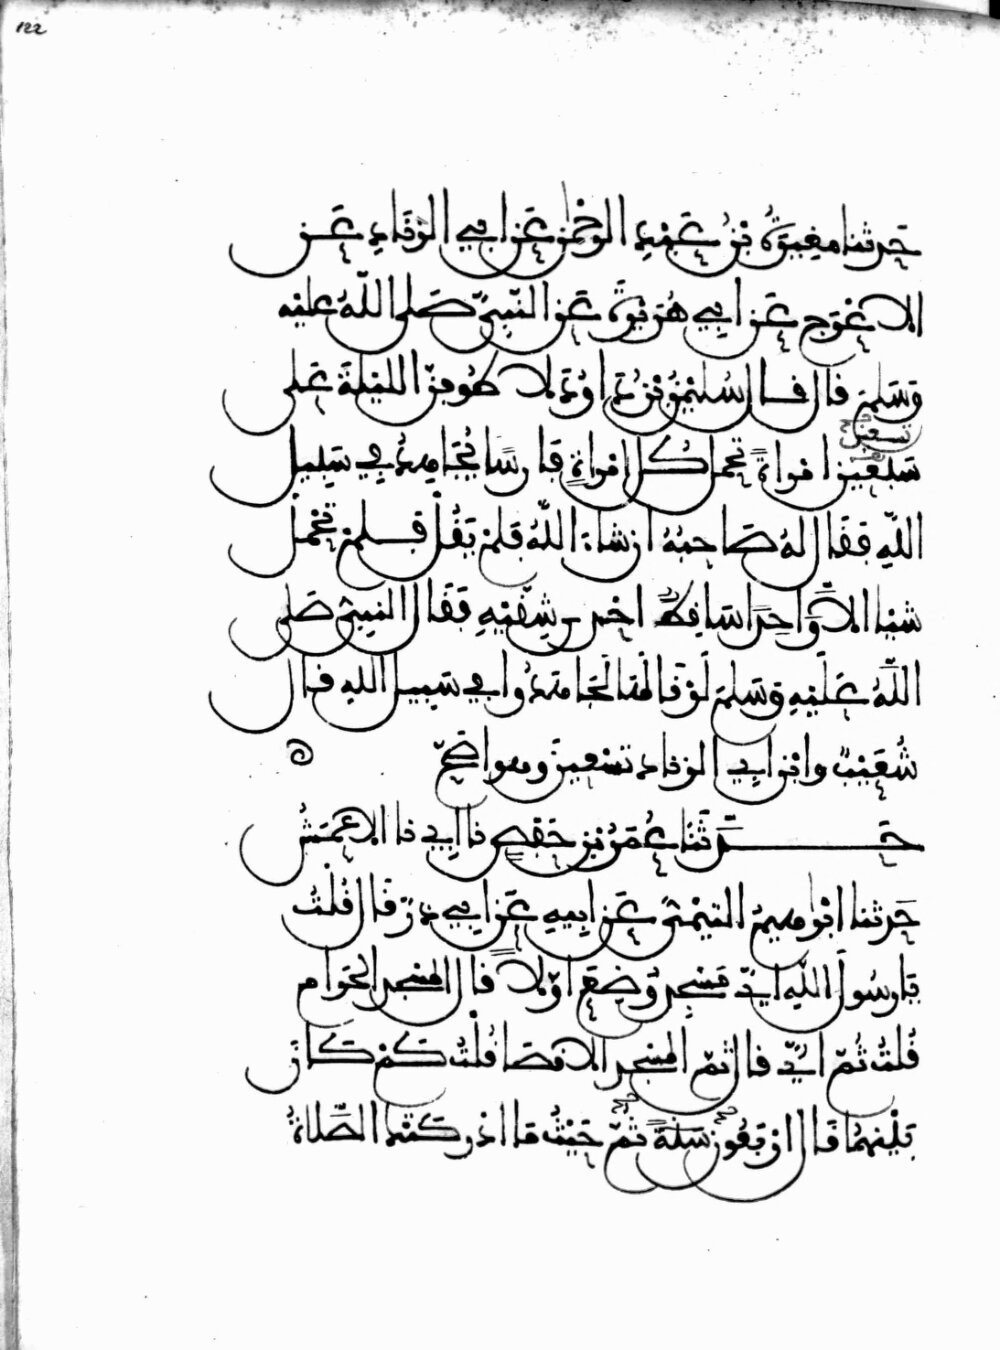 122
حدثنا مغيرة بن عبد الرحمن عن ابي الزناد عن
الاعرج عن ابي هريرة عن النبي صلى الله عليه
وسلم قال قال سليمن بن داود لاطوفن الليلة على
تسعين
سبعين امراة تحمل كل امراة فارسا يجاهد في سبيل
الله فقال له صاحبه ان شاء الله فلم يقل فلم تحمل
شيئا الا واحدا ساقطا احدى شقيه فقال النبي صلى
الله عليه وسلم لو قالها لجاهدوا في سبيل الله قال
شعيب وابن ابي الزناد تسعين وهو اصح
حدثنا عمر بن حفص نا ابي نا الاعمش
حدثنا ابرهيم التيمي عن ابيه عن ابي ذر قال قلت
يا رسول الله اي مسجد وضع اولا قال المسجد الحرام
قلت ثم اي قال ثم المسجد الاقصا قلت كم كان
بينهما قال اربعون سنة ثم حيث ما ادركتك الصلاة